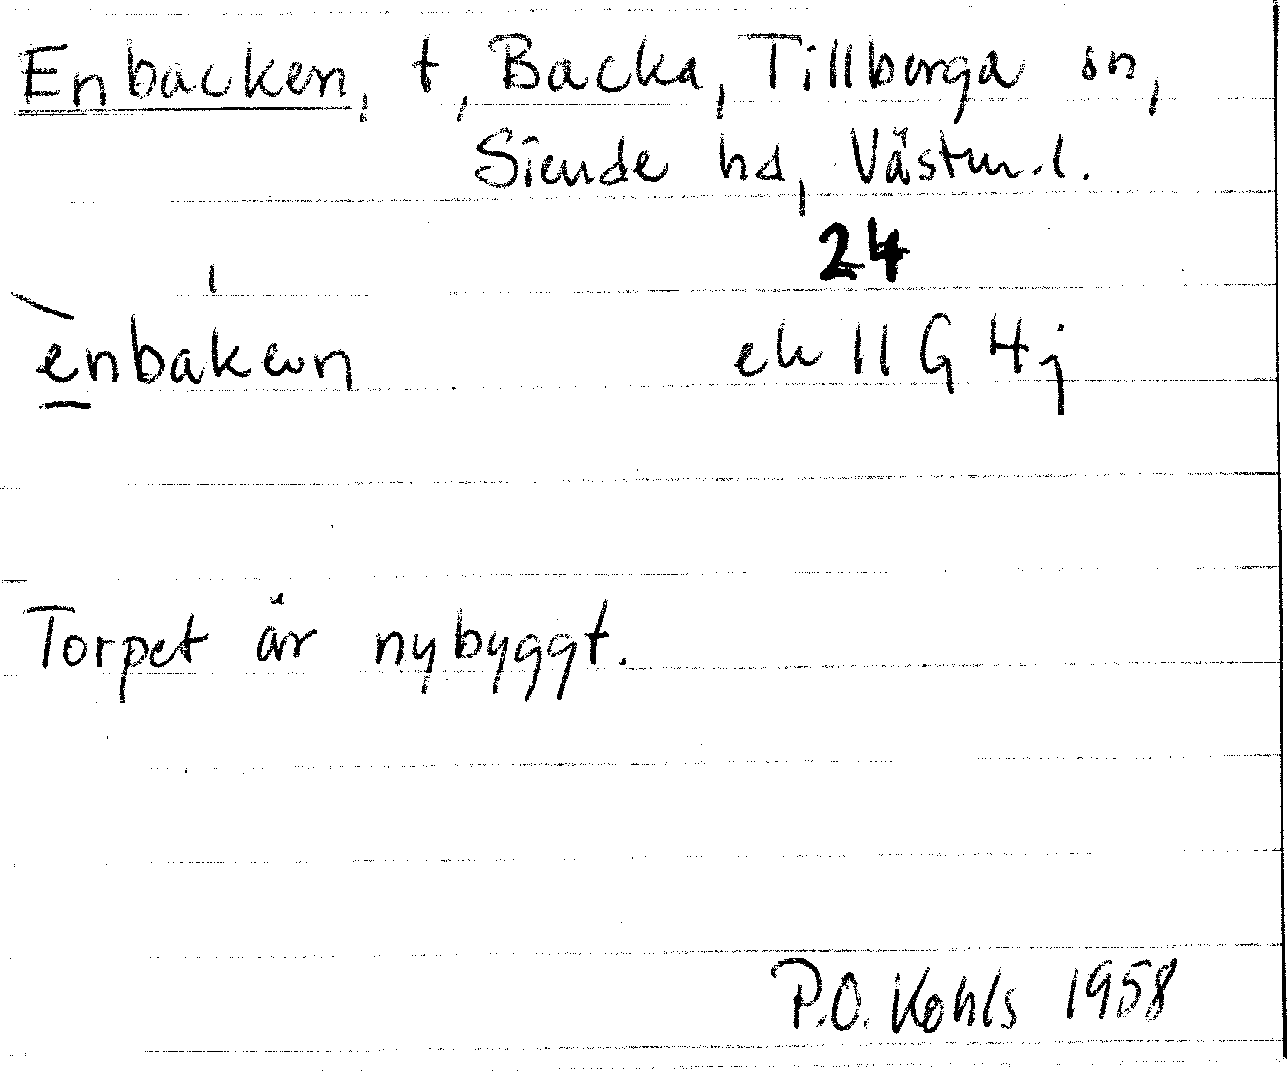 Enbacken, t, Backa, Tillberga sn,
Siende hd, Västm.l.
24
ek 11 G 4j
Torpet är nybyggt.
P.O. Kohls 1958